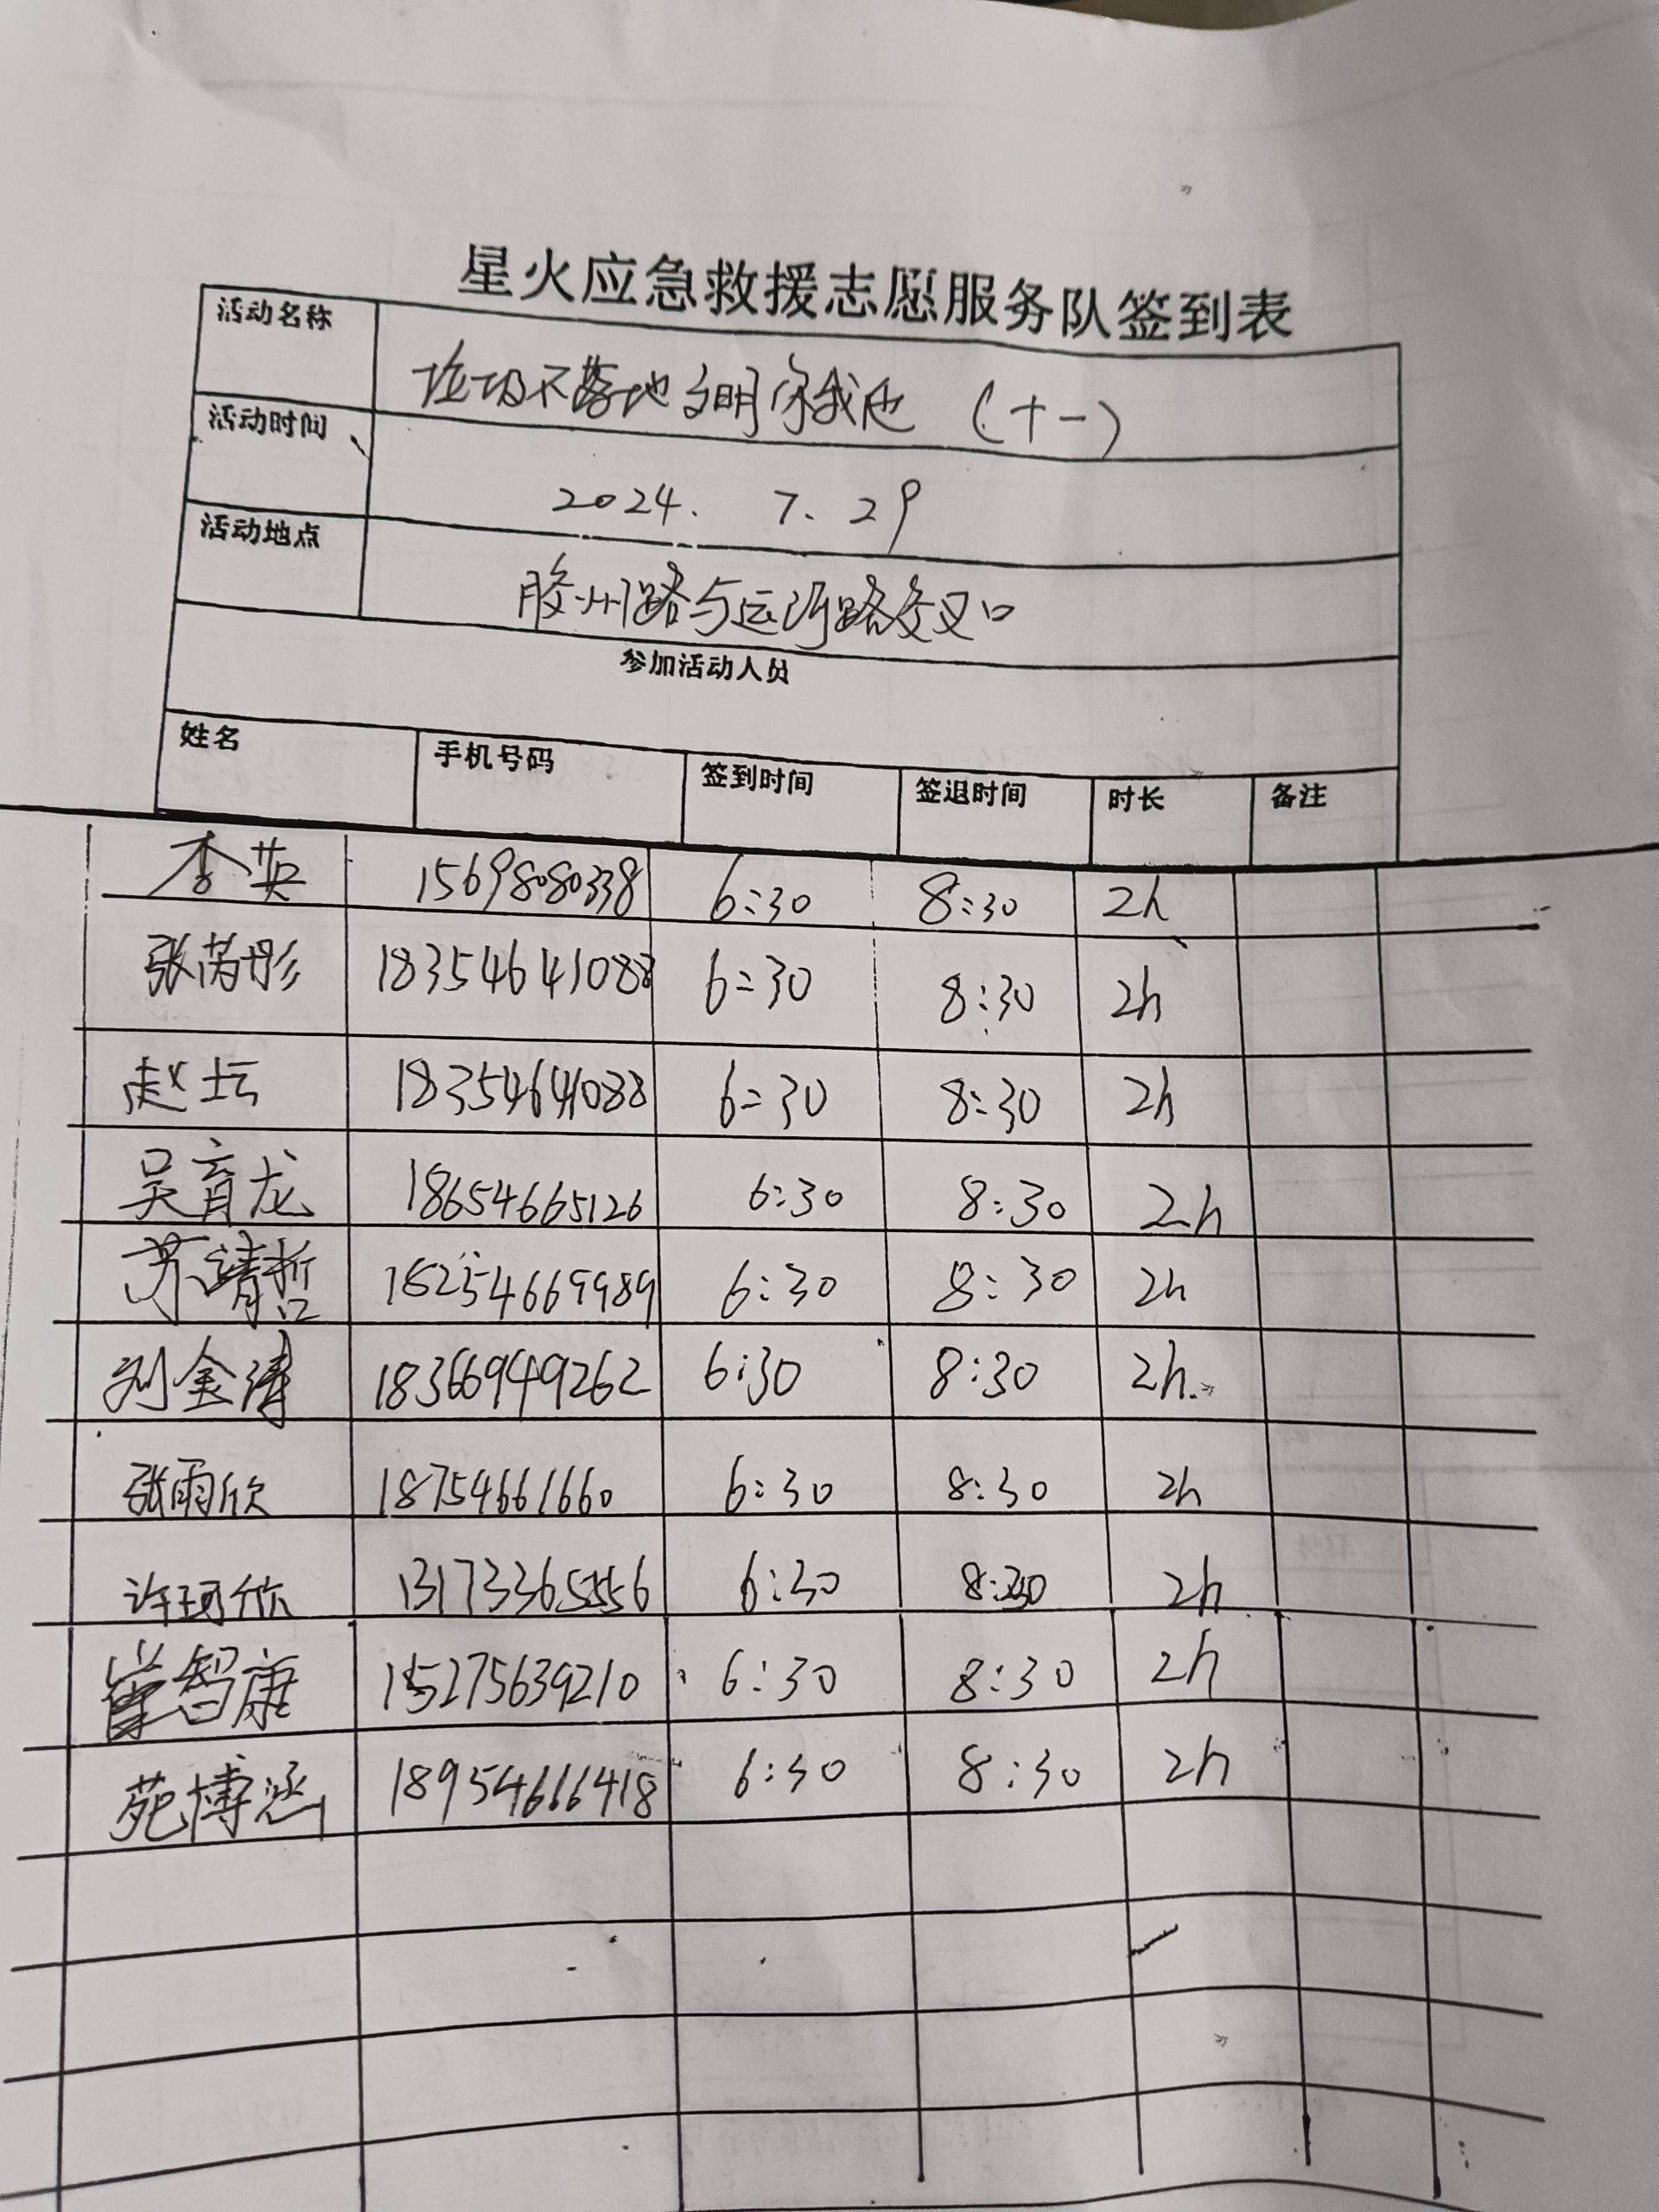 星火应急救援志愿服务队签到表
活动名称 垃圾不落地 文明你我他 (十一)
活动时间 2024. 7. 29
活动地点 胶州路与运河路交叉口
参加活动人员
姓名 手机号码 签到时间 签退时间 时长 备注
李英 15698080338 6:30 8:30 2h
张芮彤 18354641088 6:30 8:30 2h
赵坛 18354641088 6:30 8:30 2h
吴育龙 18654665126 6:30 8:30 2h
苏靖哲 18254669989 6:30 8:30 2h
刘金涛 18366949262 6:30 8:30 2h
张雨欣 18754661660 6:30 8:30 2h
许珂欣 13173365556 6:30 8:30 2h
智康 15275639210 6:30 8:30 2h
苑博涵 18954666418 6:30 8:30 2h